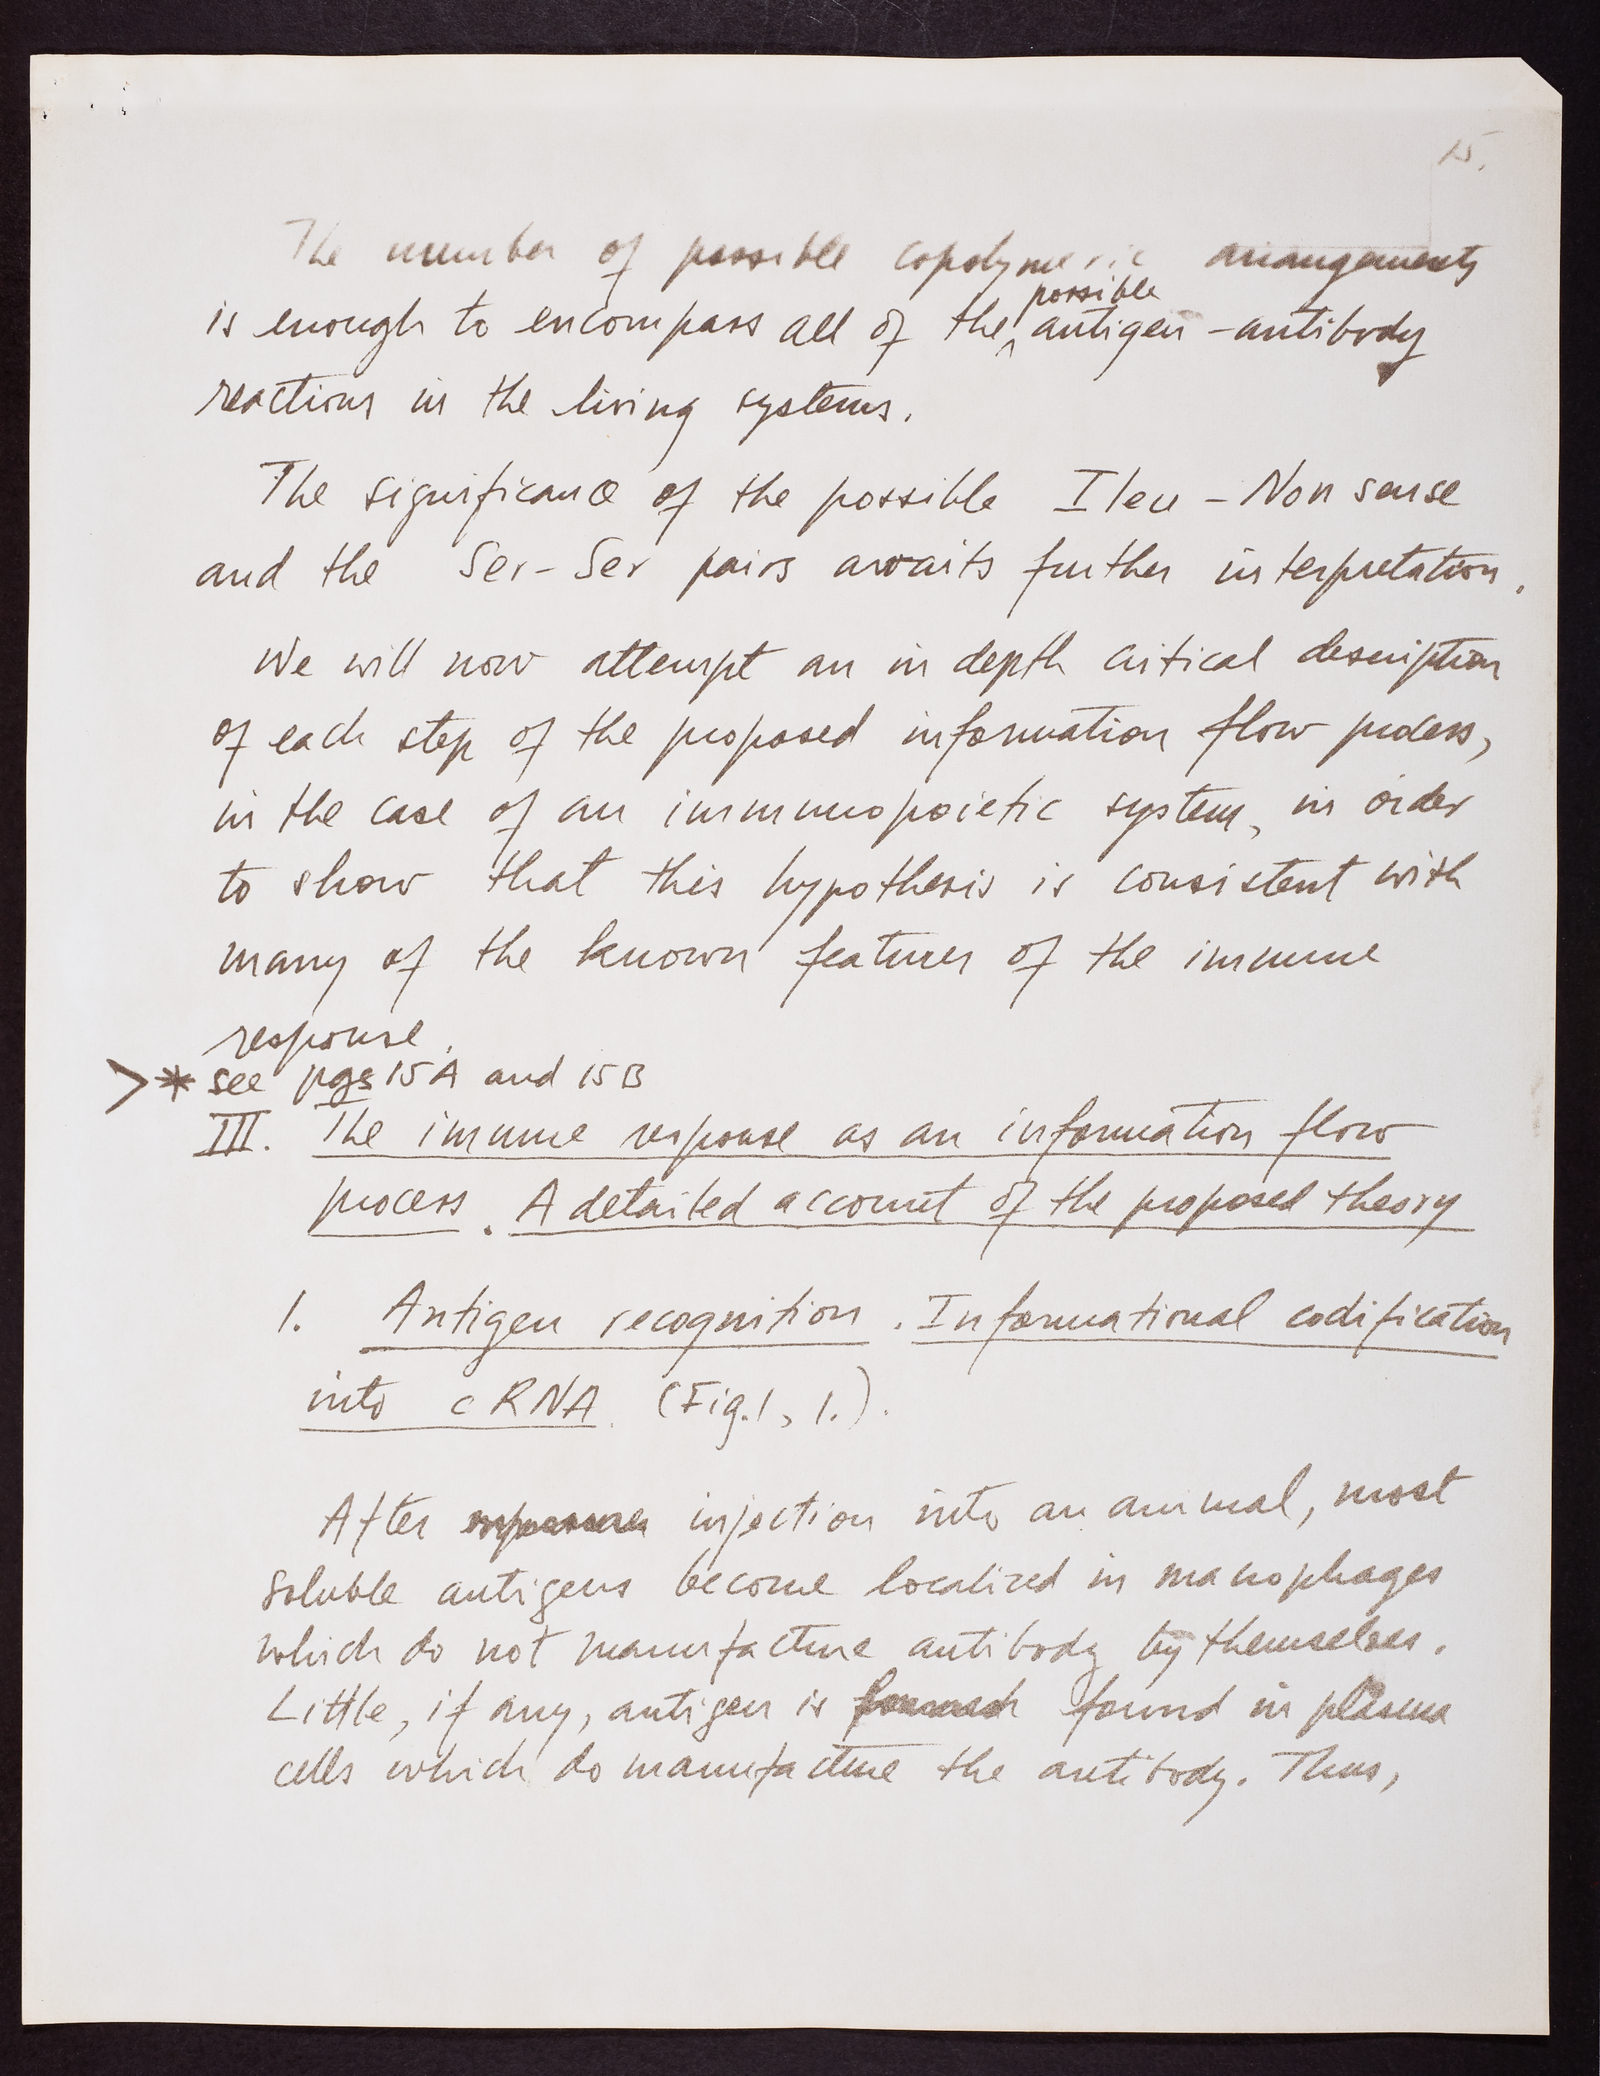 15.
The number of possible copolymeric arrangements
is enough to encompass all of the possible antigen-antibody
reactions in the living systems.
The significance of the possible Ileu - Non sense
and the Ser-Ser pairs awaits further interpretation.
We will now attempt an in depth critical description
of each step of the proposed information flow process,
in the case of an immunopoietic system, in order
to show that this hypothesis is consistent with
many of the known features of the immune
response.
>* see pgs 15A and 15B
III. The immune response as an information flow
process. A detailed account of the proposed theory
1. Antigen recognition. Informational codification
into cRNA (Fig.1, 1.).
After injection into an animal, most
soluble antigens become localized in macrophages
which do not manufacture antibody by themselves.
Little, if any, antigen is found in plasma
cells which do manufacture the antibody. Thus,